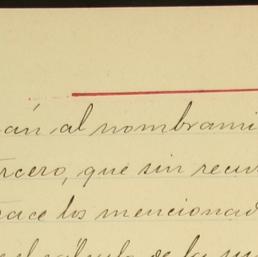 án al nombrami
rcero, que sin recu
ace los mencionad
el cálculo de la